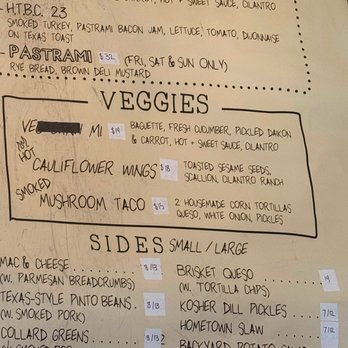 HOT + SWEET SAUCE, CILANTRO
- H.T.B.C. 23
SMOKED TURKEY, PASTRAMI BACON JAM, LETTUCE, TOMATO, DIJONNAISE
ON TEXAS TOAST
- PASTRAMI $32 (FRI, SAT & SUN ONLY)
RYE BREAD, BROWN DELI MUSTARD
VEGGIES
MI $19 BAGUETTE, FRESH CUCUMBER, PICKLED DAIKON
& CARROT, HOT + SWEET SAUCE, CILANTRO
HOT
CAULIFLOWER WINGS $18 TOASTED SESAME SEEDS,
SCALLION, CILANTRO RANCH
SMOKED
MUSHROOM TACO $15 2 HOUSEMADE CORN TORTILLAS
QUESO, WHITE ONION, PICKLES
SIDES SMALL / LARGE
MAC & CHEESE . . . . 8/13
(W. PARMESAN BREADCRUMBS)
TEXAS-STYLE PINTO BEANS . 8/13
(W. SMOKED PORK)
COLLARD GREENS . . 8/13
BRISKET QUESO . . . . 14
(W. TORTILLA CHIPS)
KOSHER DILL PICKLES . . . 7/12
HOMETOWN SLAW . . . 7/12
BACKYARD POTATO